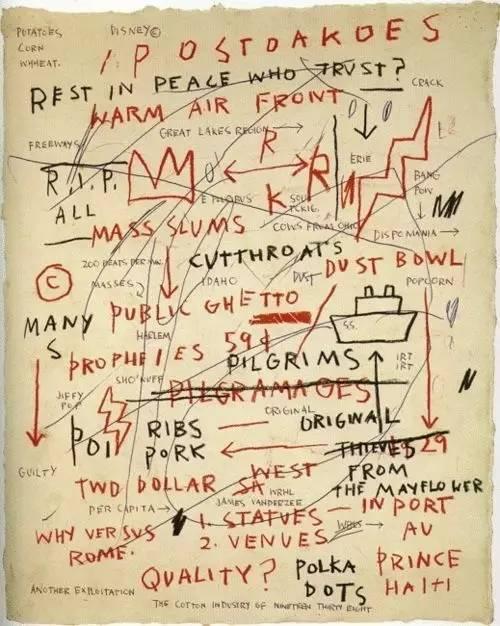 POTATOES DISNEY©
CORN
WHHEAT.
POSTOAKOES
REST IN PEACE WHO TRVST?
WARM AIR FRONT CRACK
GREAT LAKES REGION
FREEWAYS R
R.I.P. R ERIE
BANG
POW
ALL K
MASS SLUMS COWS FROM OHIO DISPOMANIA
CUTTHROAT'S
200 BEATS PER MN. DUST BOWL
© MASSES IDAHO DUST POPCORN
PUBLIC GHETTO
MANY S.S.
HARLEM 59¢
S PROPHEIES PILGRIMS IRT
IRT
SHO'NUFF
PILGRAMAGES
JIFFY
POP ORIGINAL
POI RIBS ORIGINAL
PORK THIEVES 29
GUILTY WEST FROM
TWO DOLLAR SA THE MAYFLOWER
WRHL
PER CAPITA JAMES VANDERZEE
1. STATVES IN PORT
WHY VERSVS AU
ROME. 2. VENUES
QUALITY? POLKA PRINCE
DOTS HAITI
ANOTHER EXPLOITATION
THE COTTON INDUSTRY OF NINETEEN THIRTY EIGHT